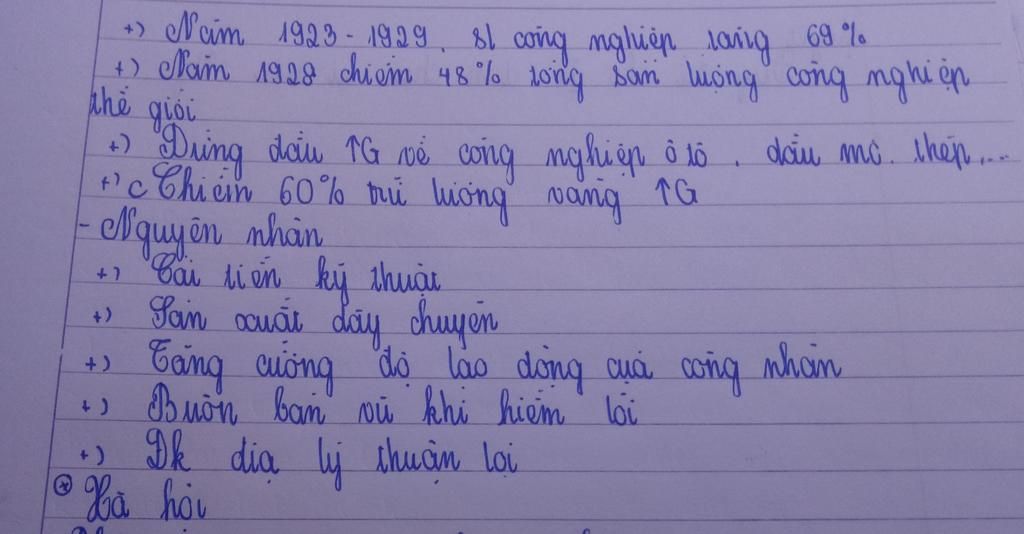 +) Năm 1923 - 1929, sl công nghiệp tăng 69%
+) Năm 1928 chiếm 48% tổng sản lượng công nghiệp
thế giới
+) Đứng đầu TG về công nghiệp ô tô, dầu mỏ, thép,...
+) Chiếm 60% trữ lượng vàng TG
- Nguyên nhân
+) Cải tiến kỹ thuật
+) Sản xuất dây chuyền
+) Tăng cường độ lao động của công nhân
+) Buôn bán vũ khí kiếm lời
+) Đk địa lý thuận lợi
* Xã hội